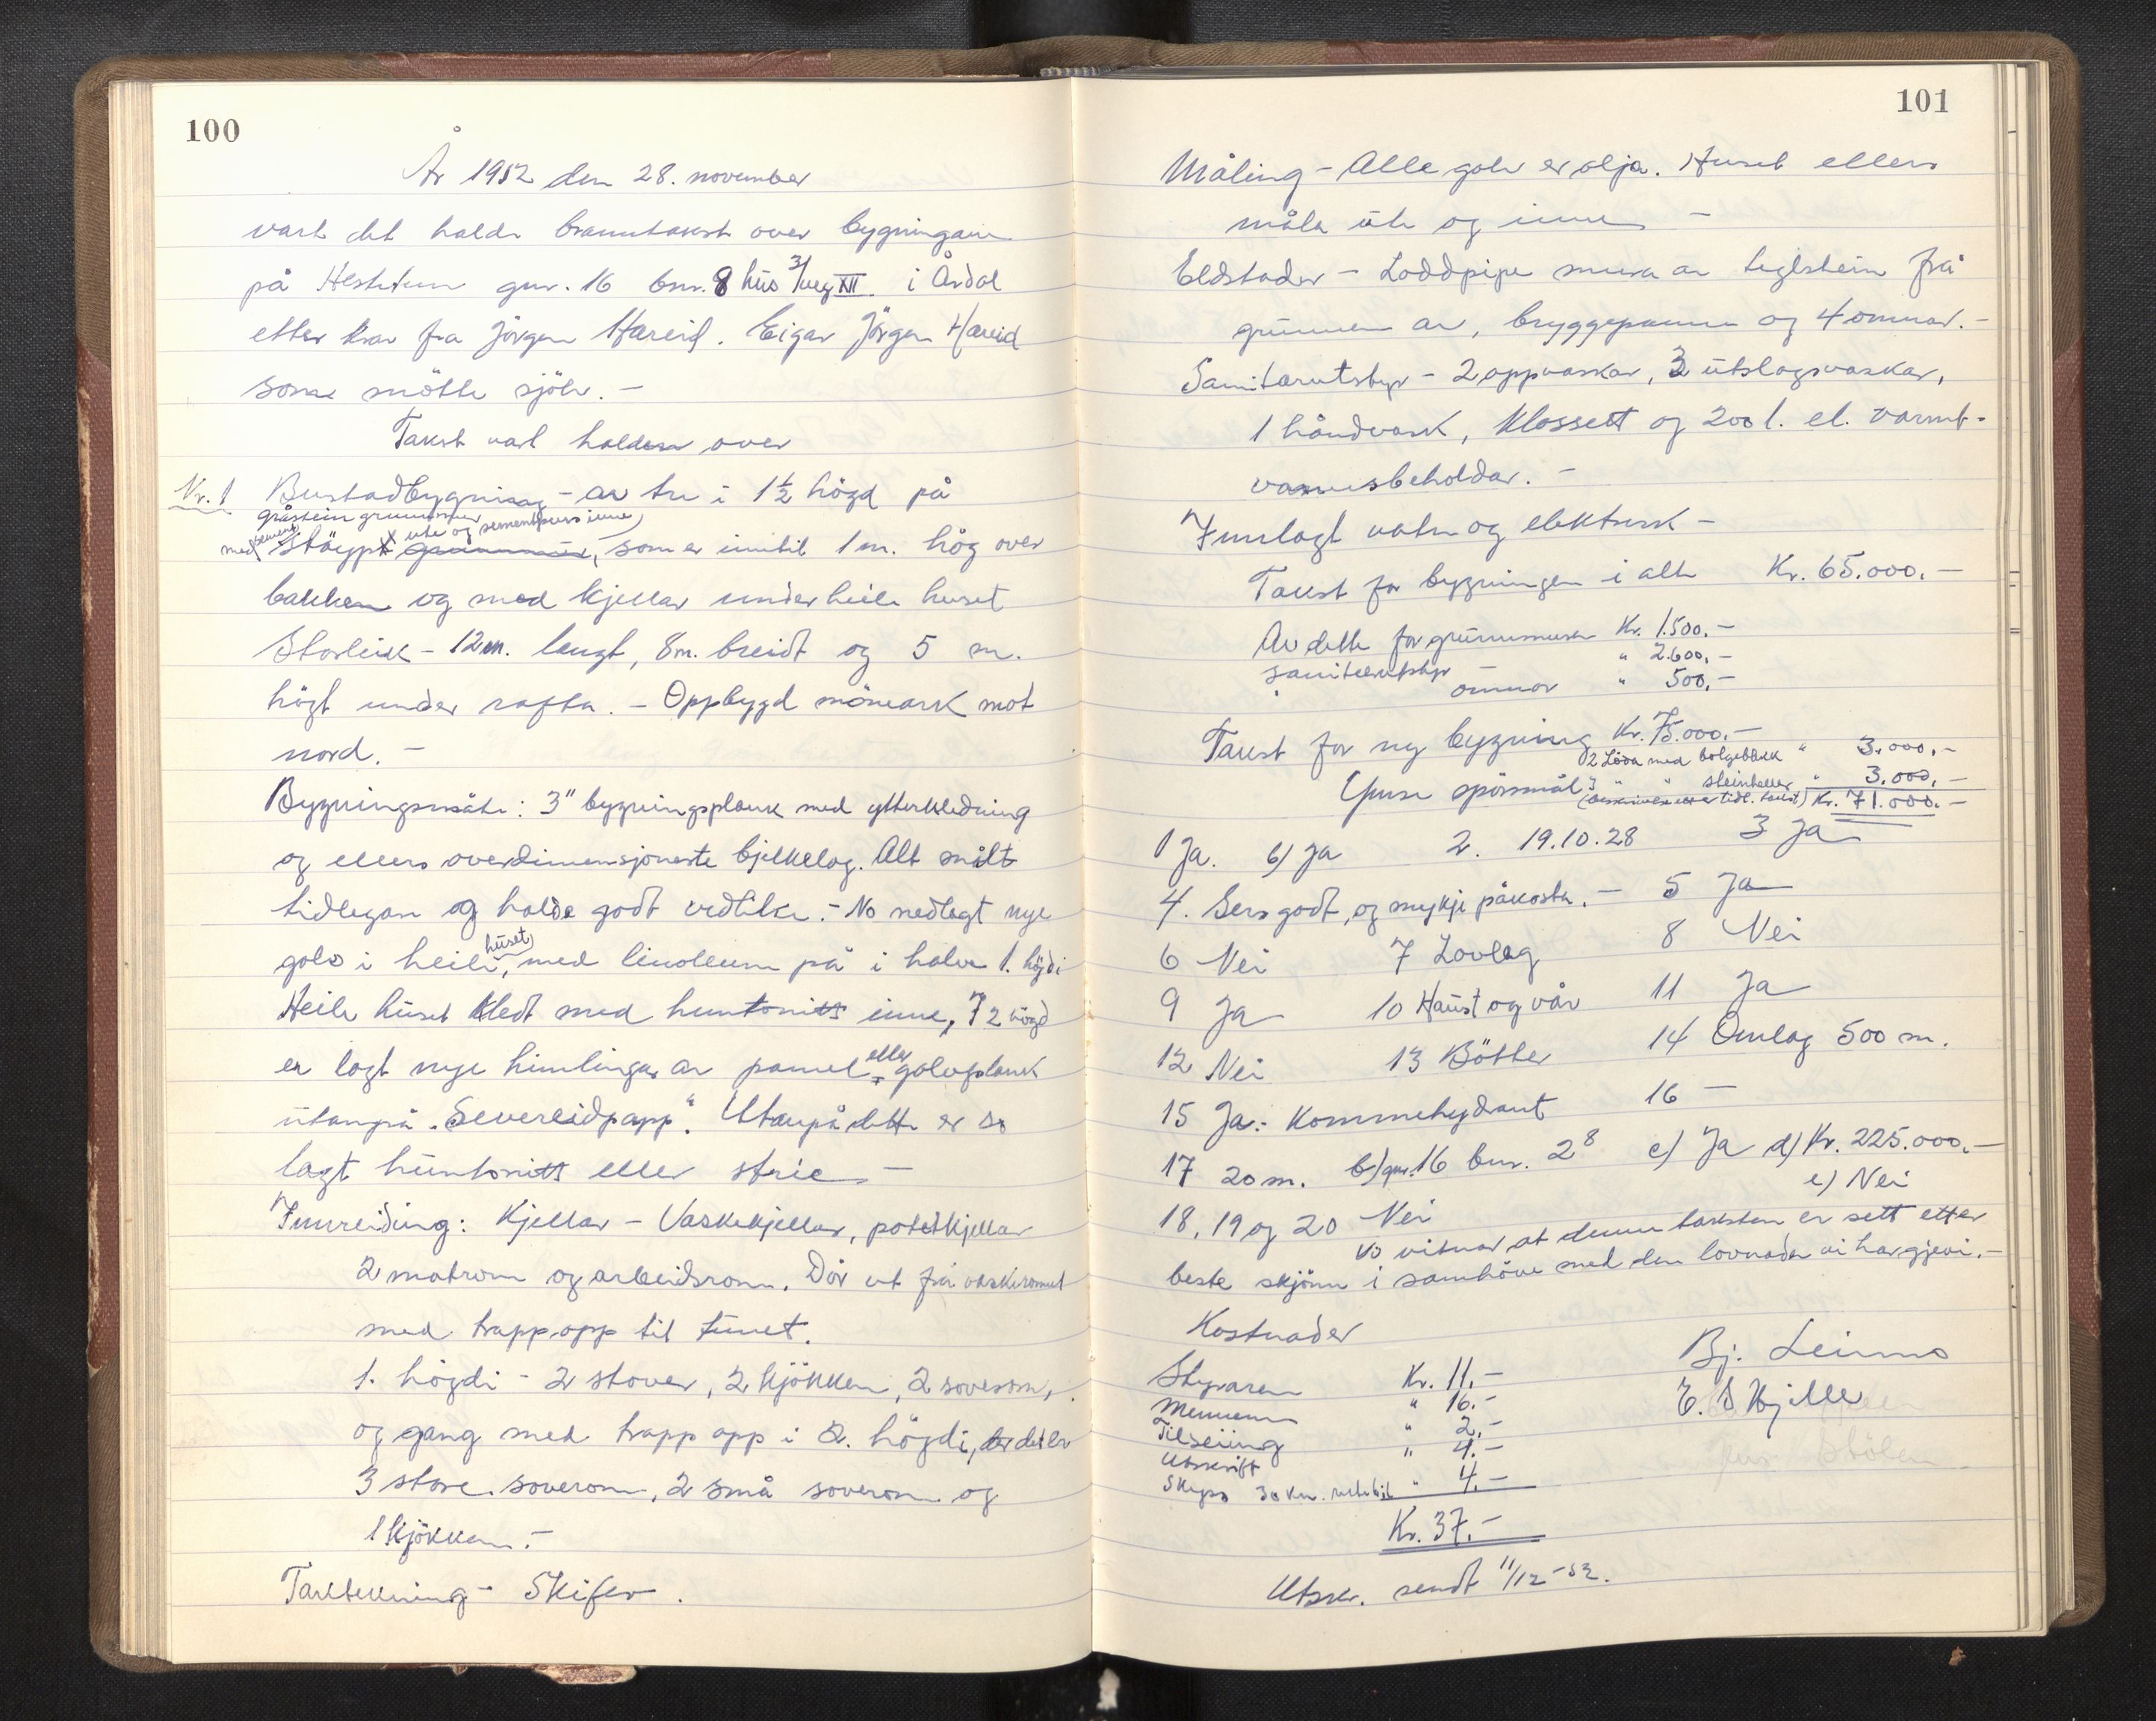 100
År 1952 den 28. november
vart det halde branntakst over bygningane
på Hestetun gnr. 16 bnr. 8 hus 3/veg XII i Årdal
etter krav fra Jörgen Hareid. Eigar Jörgen Hareid
som mötte sjölv. –
Takst vart halden over
Nr. 1 Bustadbygning – av tre i 1½ högd på
gråstein grunnmur
med sement ute og sementpuss inne
støypt grunnmur, som er inntil 1 m. hög over
bakken og med kjellar under heile huset
Storleik – 12 m. langt, 8 m. breidt og 5 m.
högt under rafta. – Oppbygd möneark mot
nord. –
Bygningsmåte: 3" bygningsplank med ytterkledning
og ellers overdimensjonerte bjelkelag. Alt målt
tidlegare og halde godt vedlike. – No nedlagt nye
golv i heile huset, med linoleum på i halve 1. högdi
Heile huset kledt med huntonitt inne, I 2 högd
er lagt nye himlingar av panel eller golvplank
utanpå "Severeidpapp". Utanpå dette er so
lagt huntonitt eller strie –
Innreiding: Kjellar – Vaskekjellar, potetkjellar
2 matrom og arbeidsrom. Dör ut frå vaskeromet
med trapp opp til tunet.
1. högdi – 2 stover, 2 kjökken, 2 soverom,
og gang med trapp opp i 2. högdi, der det er
3 store soverom, 2 små soverom og
1 kjökken. –
Taktekning – Skifer.
101
Måling – Alle golv er olja. Huset ellers
måla ute og inne –
Eldstader – Loddpipe mura av teglstein frå
grunnen av, bryggepanne og 4 omnar. –
Sanitærutstyr – 2 oppvaskar, 3 utslagsvaskar,
1 håndvask, Klossett og 200 l. el. varmt-
vannsbeholdar. –
Innlagt vatn og elektrisk –
Takst for bygningen i alt Kr. 65.000. –
Av dette for grunnmuren Kr. 1.500. –
sanitærutstyr " 2.600. –
omnar " 500. –
Takst for ny bygning Kr. 75.000. –
2 Löda med bølgeblekk " 3.000. –
Ymse spörsmål 3 " " steinheller " 3.000. –
(beskrivelse etter tidl. takst) Kr. 71.000. –
1 Ja. b) Ja 2. 19.10.28 3 Ja
4. Sers godt, og mykje påkosta. – 5 Ja
6 Nei 7 Lovleg 8 Nei
9 Ja 10 Haust og vår 11 Ja
12 Nei 13 Bötter 14 Omlag 500 m.
15 Ja: – Kommehydrant 16 –
17 20 m. b) gnr. 16 bnr. 2 8 c) Ja d) Kr. 225.000. –
e) Nei
18, 19 og 20 Nei
Vi vitnar at denne taksten er sett etter
beste skjönn i samhöve med den lovnaden vi har gjevi. –
Kostnader
Bj. Leirmo
Styraren Kr. 11. –
E. S Hjelle
Mennene " 16. –
Tilseiing " 2. –
Utskrift " 4. –
Skyss 30 km. " 4. –
Kr. 37. –
Utskr. sendt 11/12 – 52.